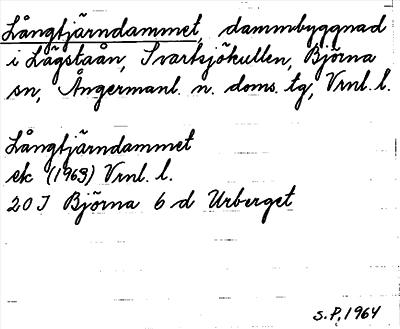 Långtjärndammet, dammbyggnad
i Lägstaån, Svartsjökullen, Björna
sn, Ångermanl. n. doms. tg, Vrnl. l.
Långtjärndammet
ek (1963) Vrnl. l.
20 J Björna 6 d Urberget
S.P. 1964